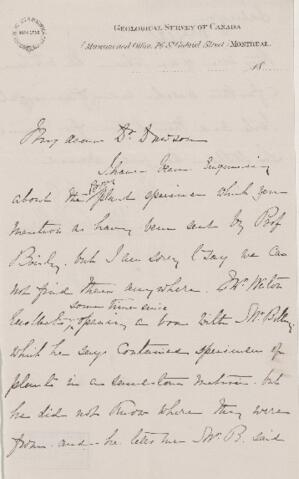 GEOLOGICAL SURVEY OF CANADA
(Museum and Office, 76 St Gabriel Street) MONTREAL.
18
My dear Dr Dawson
I have been enquiring
about the fossil plant specimens which you
mention as having been sent by Prof
but I am sorry to say we can
not find them anywhere. Mr Weston
some time since
recollects opening a box with Mr
which he says contained specimens of
plants in a sandstone matrix. but
he did not know where they were
from. and he tells me Mr. B. said